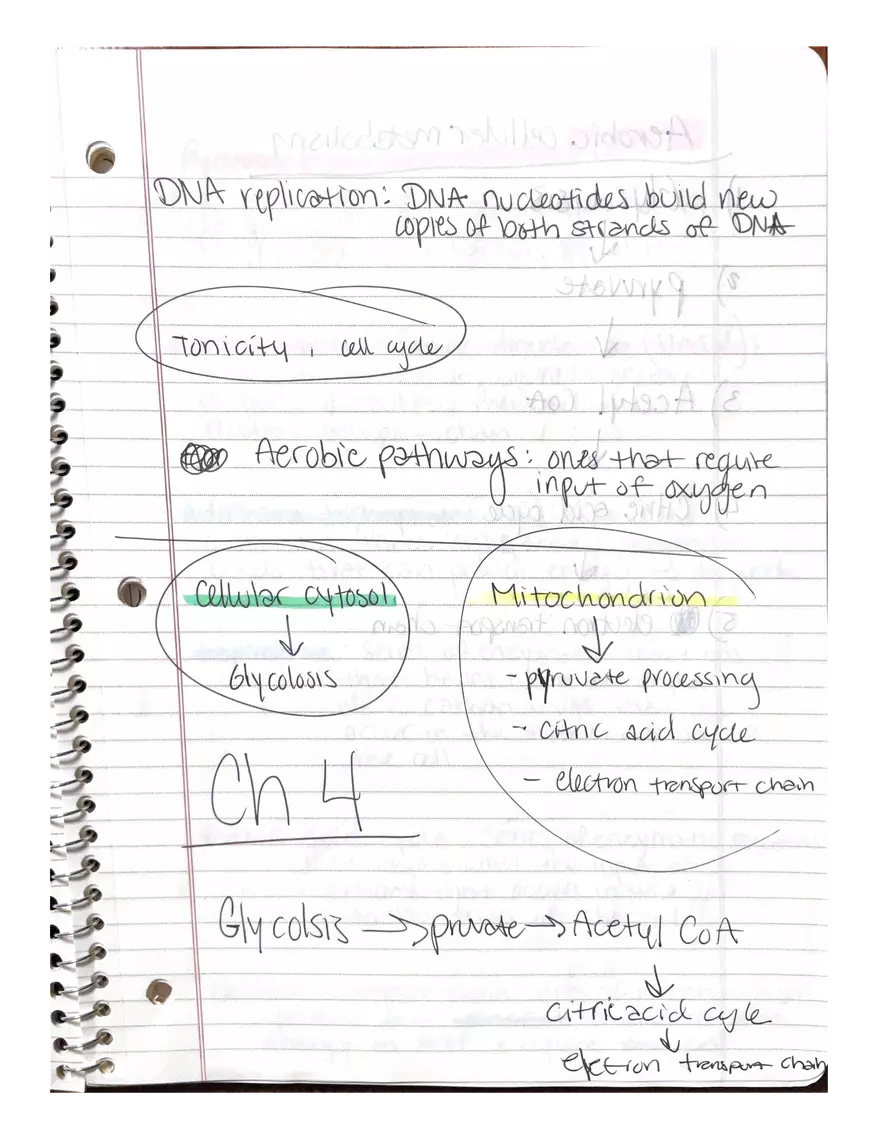 DNA replication: DNA nucleotides build new
copies of both strands of DNA
Tonicity, cell cycle
Aerobic pathways: ones that require
input of oxygen
Cellular cytosol
Glycolosis
Mitochondrion
- pyruvate processing
- citric acid cycle
- electron transport chain
Ch 4
Glycolsis → pruvate → Acetyl CoA
citric acid cycle
electron transport chain